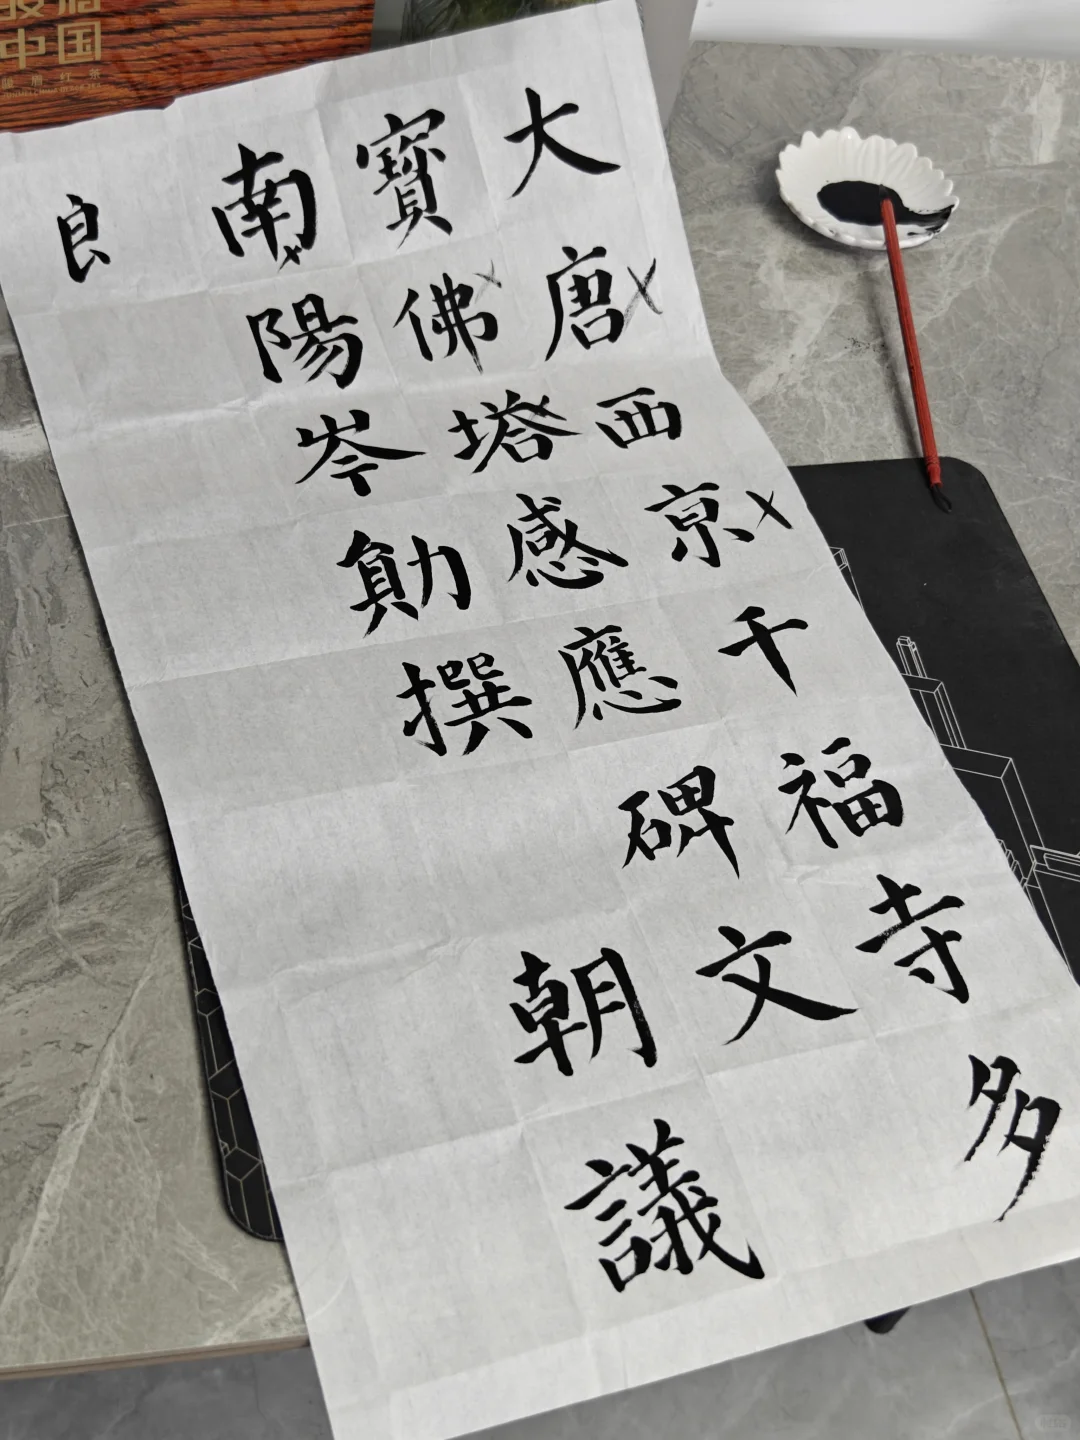 中国
大唐西京千福寺多
寶佛塔感應碑文
南陽岑勛撰 朝議
良